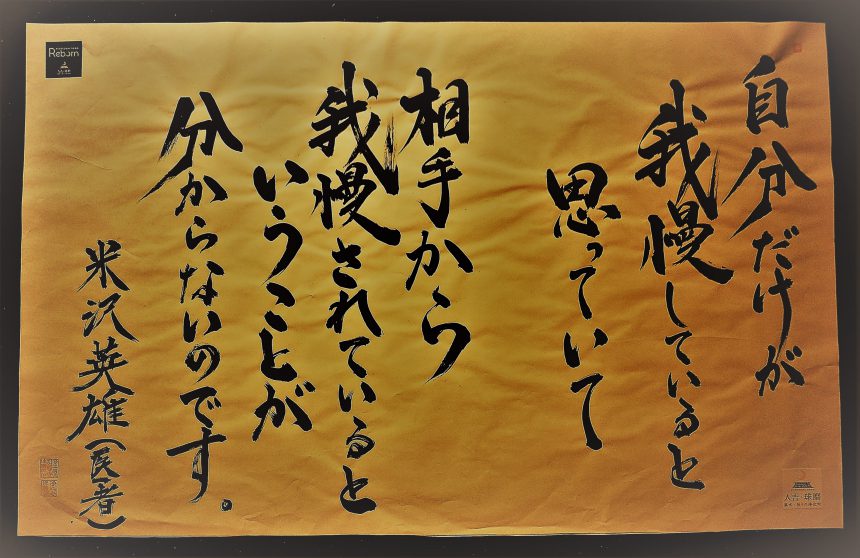 自分だけが
我慢していると
思っていて
相手から
我慢されていると
いうことが
分からないのです。
米沢英雄(医者)
Reborn
人吉・球磨